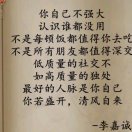 你自己不强大
认识谁都没用
不是每顿饭都值得你去吃
不是所有朋友都值得深交
低质量的社交不
如高质量的独处
最好的人脉是你自己
你若盛开，清风自来
—李嘉诚